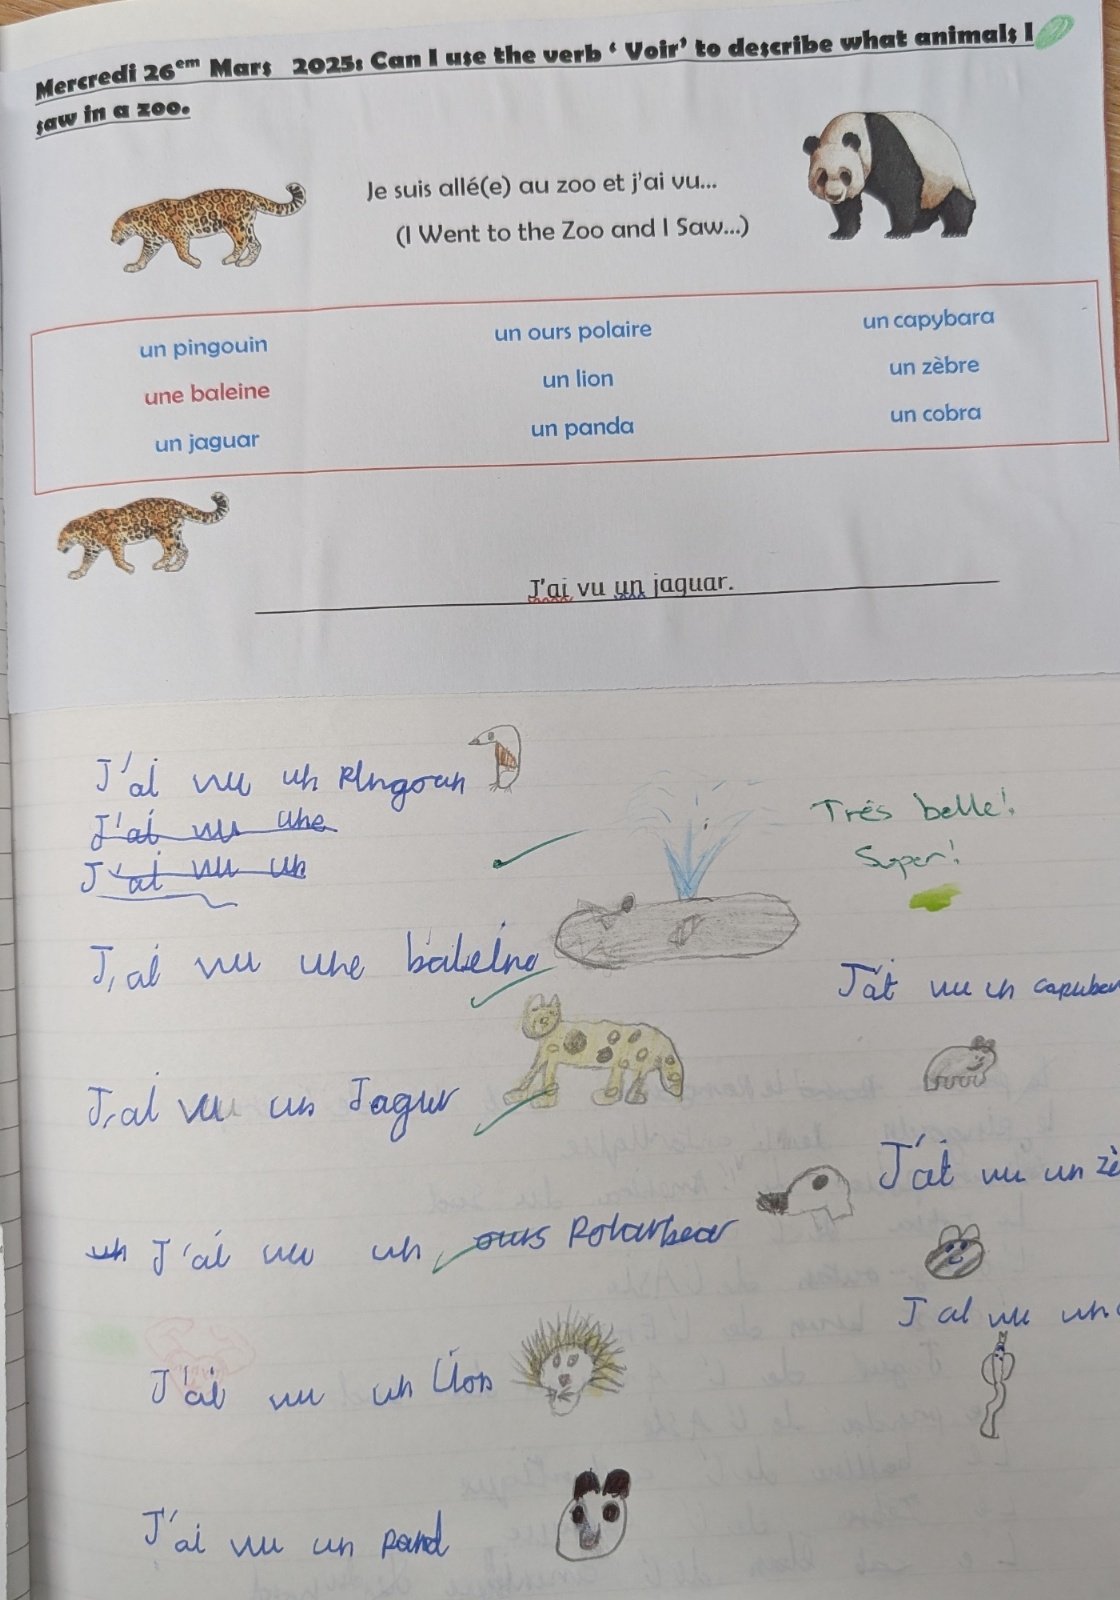 Mercredi 26em Mars 2025: Can I use the verb ‘ Voir’ to describe what animals I
saw in a zoo.
Je suis allé(e) au zoo et j'ai vu...
(I Went to the Zoo and I Saw...)
un pingouin
une baleine
un jaguar
un ours polaire
un lion
un panda
un capybara
un zèbre
un cobra
J'ai vu un jaguar.
J'ai vu un Pingoun
J'ai vu une
J'ai vu un
Trés belle!
Super!
J,ai vu une baleine
J,ai vu un Jagur
un J'ai vu un ours Polarbear
J'ai vu un Lion
J'ai vu un pand
J'at vu un
J'at vu un zè
J ai vu un